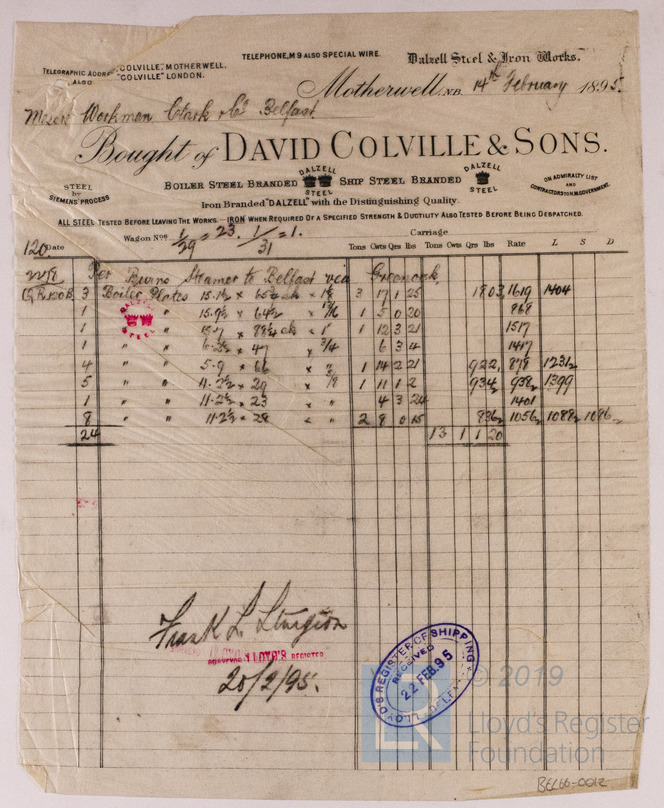 TELEPHONE, M 9 ALSO SPECIAL WIRE.
Dalzell Steel & Iron Works.
"COLVILLE", MOTHERWELL.
ALSO "COLVILLE" LONDON.
Motherwell, N.B. 14th February 1895.
Messrs Workman Clark & Co Belfast
Bought of DAVID COLVILLE & SONS.
STEEL by SIEMENS' PROCESS
BOILER STEEL BRANDED DALZELL STEEL SHIP STEEL BRANDED DALZELL STEEL
ON ADMIRALTY LIST AND CONTRACTORS TO H.M. GOVERNMENT.
Iron Branded "DALZELL" with the Distinguishing Quality.
ALL STEEL TESTED BEFORE LEAVING THE WORKS.—IRON WHEN REQUIRED OF A SPECIFIED STRENGTH & DUCTILITY ALSO TESTED BEFORE BEING DESPATCHED.
Wagon Nos 1/29 = 23. 1/31 = 1.
Carriage
120 Date Tons Cwts Qrs lbs Tons Cwts Qrs lbs Rate L S D
Per Burns Steamer to Belfast via Greenock
3 Boiler Plates 3 17 1 25 1803 1619 1404
1 " " 1 5 0 20 868
1 " " 1 12 3 21 1517
1 " " 47 x 3/4 6 3 4 1417
4 " " 5.9 x 66 1 14 2 21 922 878 1231
5 " " 11.2½ x 29 1 11 1 2 934 938 1399
1 " " 11.2½ x 23 x " 4 3 24 1401
8 " " 11.2½ x 28 x " 2 8 0 15 836 1056 1088 1086
24 13 1 1 20
DALZELL STEEL
Frank L Sturgeon
SURVEYOR LLOYD'S REGISTER
20/2/95.
LLOYD'S REGISTER OF SHIPPING
RECEIVED
22 FEB. 95
BELFAST
© 2019
LR
Lloyd's Register
Foundation
BEL66-0012